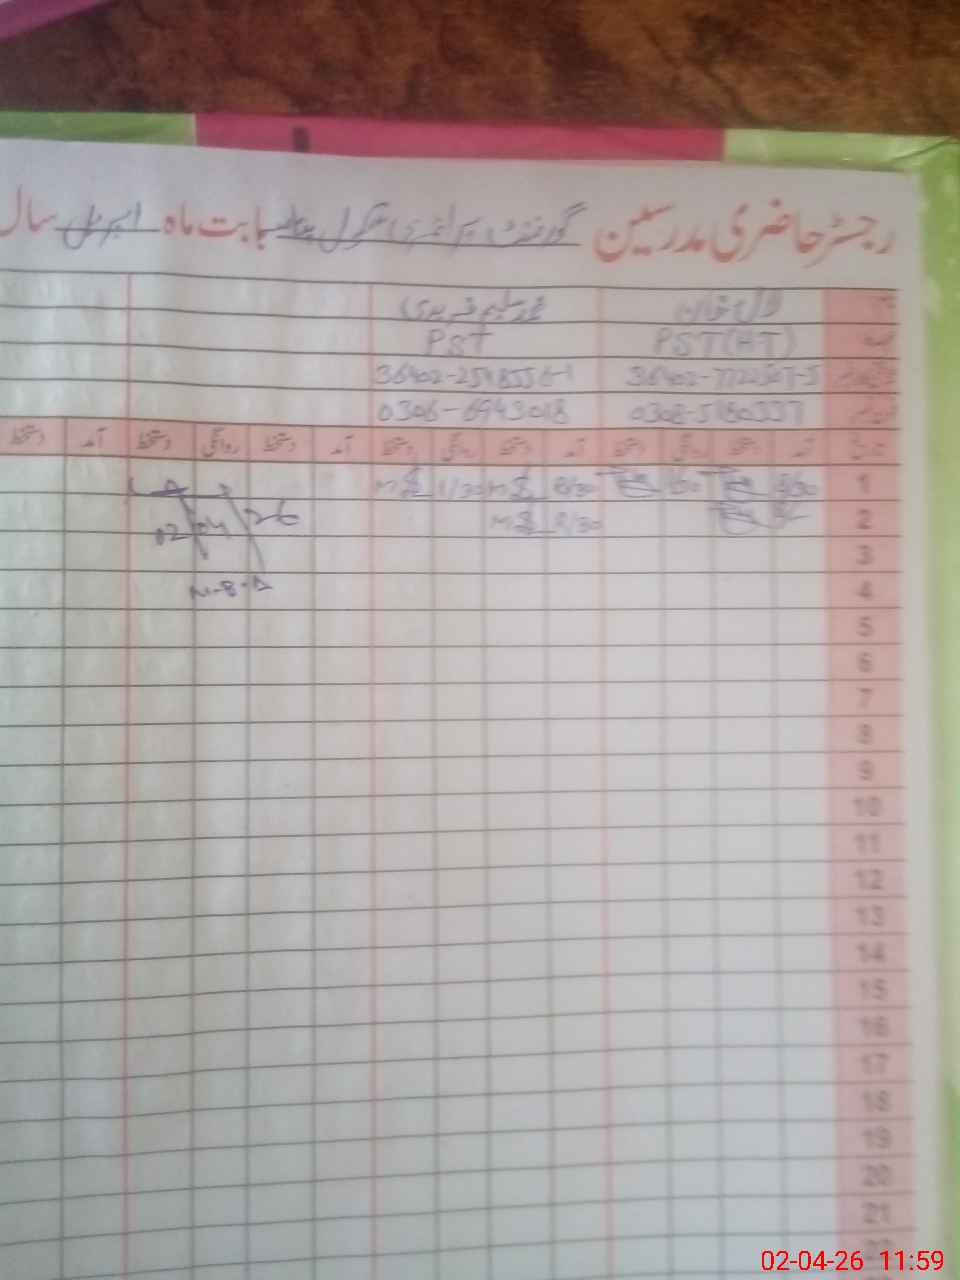 رجسٹر حاضری مدرسین گورنمنٹ پرائمری سکول بابت ماہ اپریل سال
محمد سلیم فریدی
PST(HT) PST
36402-7722507-5 36402-2548556-1
0308-5180337 0306-6943018
تاریخ آمد دستخط روانگی دستخط آمد دستخط روانگی دستخط آمد دستخط روانگی دستخط آمد دستخط
1 8/30 1/30 8/30 MS 1/30 MS
2 8/30 MS 02/04/26
3
4 M-8-A
5
6
7
8
9
10
11
12
13
14
15
16
17
18
19
20
21
22
02-04-26 11:59